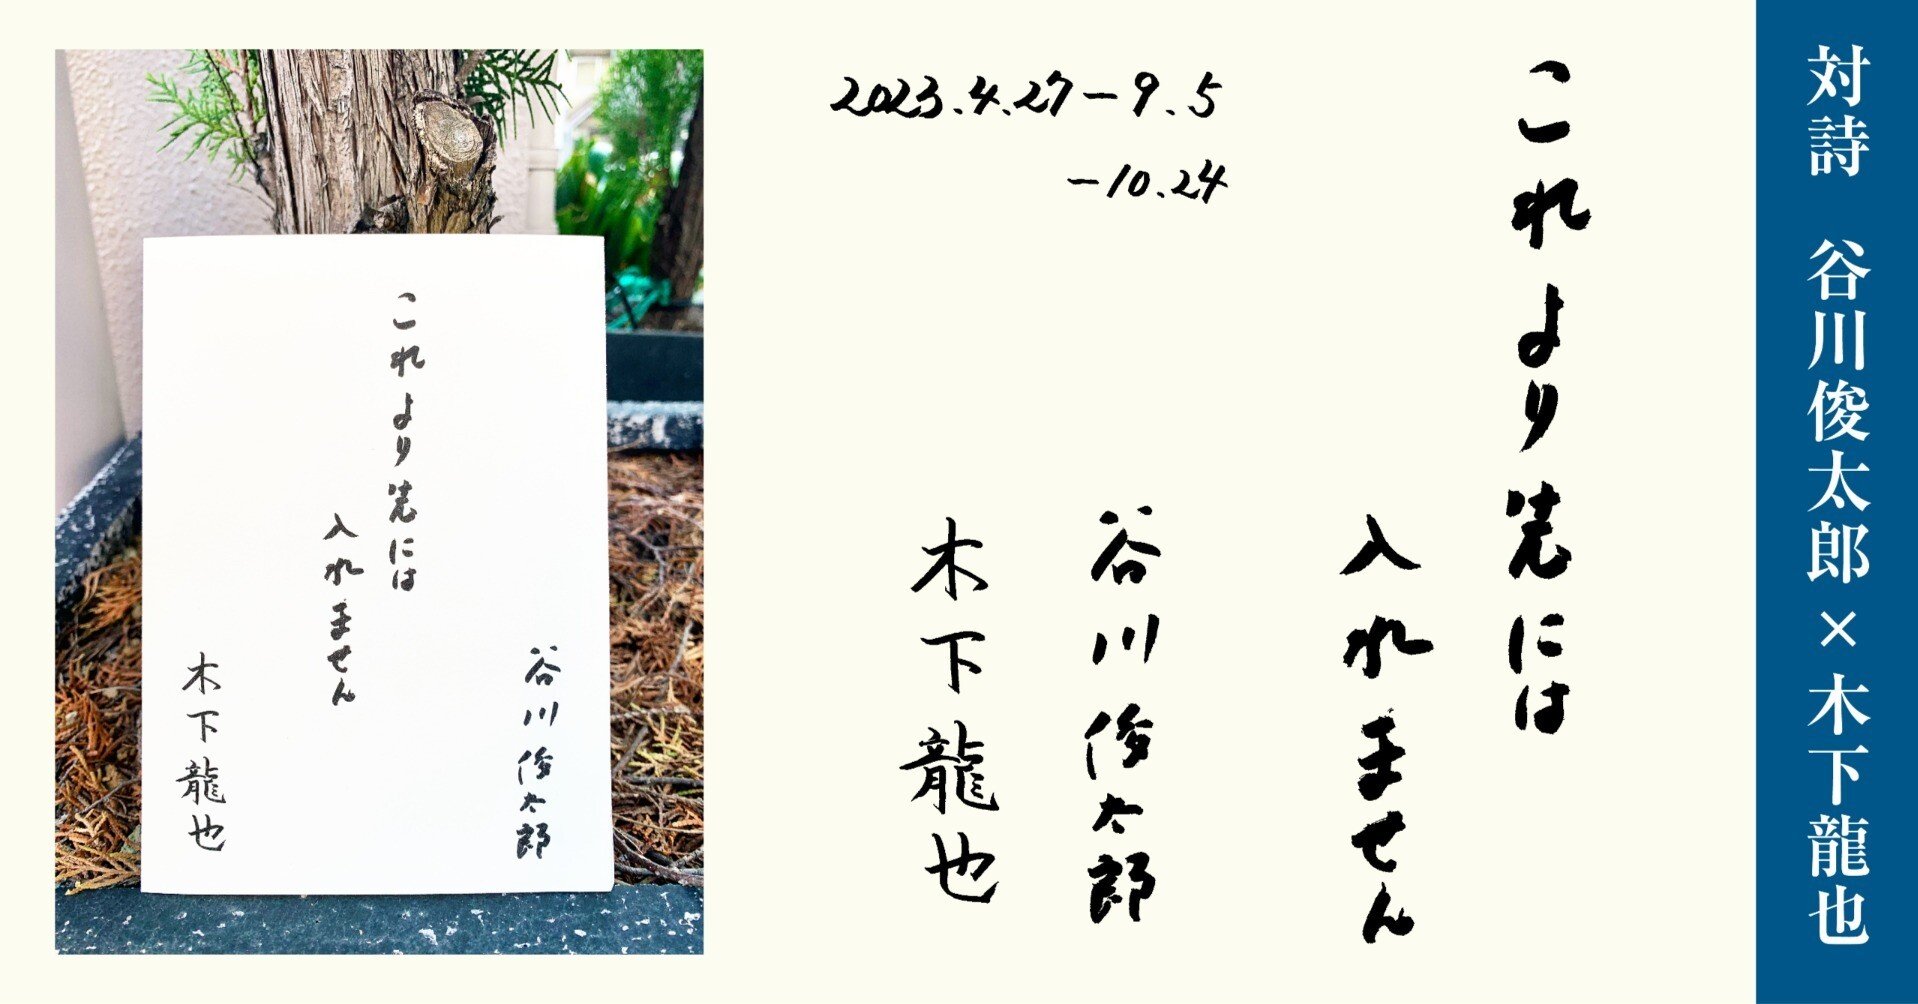 対詩 谷川俊太郎×木下龍也
これより先には
入れません
谷川俊太郎
木下龍也
2023.4.27-9.5
-10.24
谷川俊太郎
これより先には
入れません
木下龍也